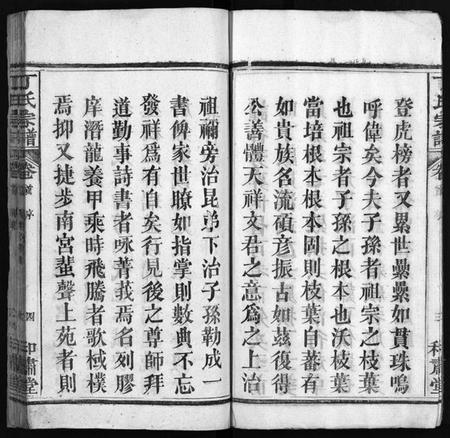 登虎榜者又累世纍纍如貫珠嗚
呼偉矣今夫子孫者祖宗之枝葉
也祖宗者子孫之根本也沃枝葉
當培根本根本固則枝葉自蕃有
如貴族名流碩彥振古如茲復得
公善體天祥文君之意爲之上治
祖禰旁治昆弟下治子孫勒成一
書俾家世瞭如指掌則數典不忘
發祥爲有自矣行見後之尊師拜
道勤事詩書者咏菁莪焉名列膠
庠潛龍養甲乘時飛騰者歌棫樸
焉抑又捷步南宮蜚聲上苑者則
丁氏宗譜
卷
序
四
和肅堂